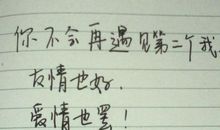 你不会再遇见第二个我
友情也好.
爱情也罢!